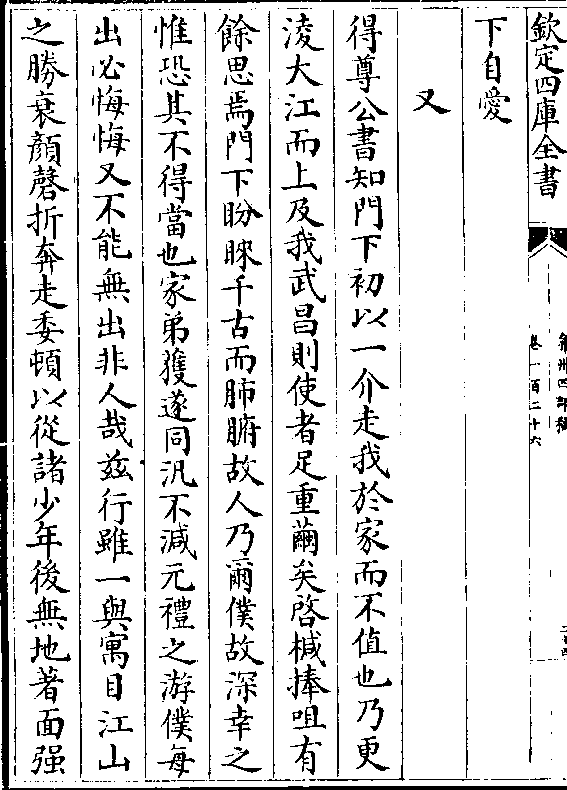 欽定四庫全書
弇州四部稿
卷一百二十六
下自愛
又
得尊公書知門下初以一介走我於家而不值也乃更
淩大江而上及我武昌則使者足重繭矣啓椷捧咀有
餘思焉門下盼睞千古而肺腑故人乃爾僕故深幸之
惟恐其不得當也家弟獲遂同汎不減元禮之游僕每
出必悔悔又不能無出非人哉兹行雖一與寓目江山
之勝衰顔磬折奔走委頓以從諸少年後無地著面强